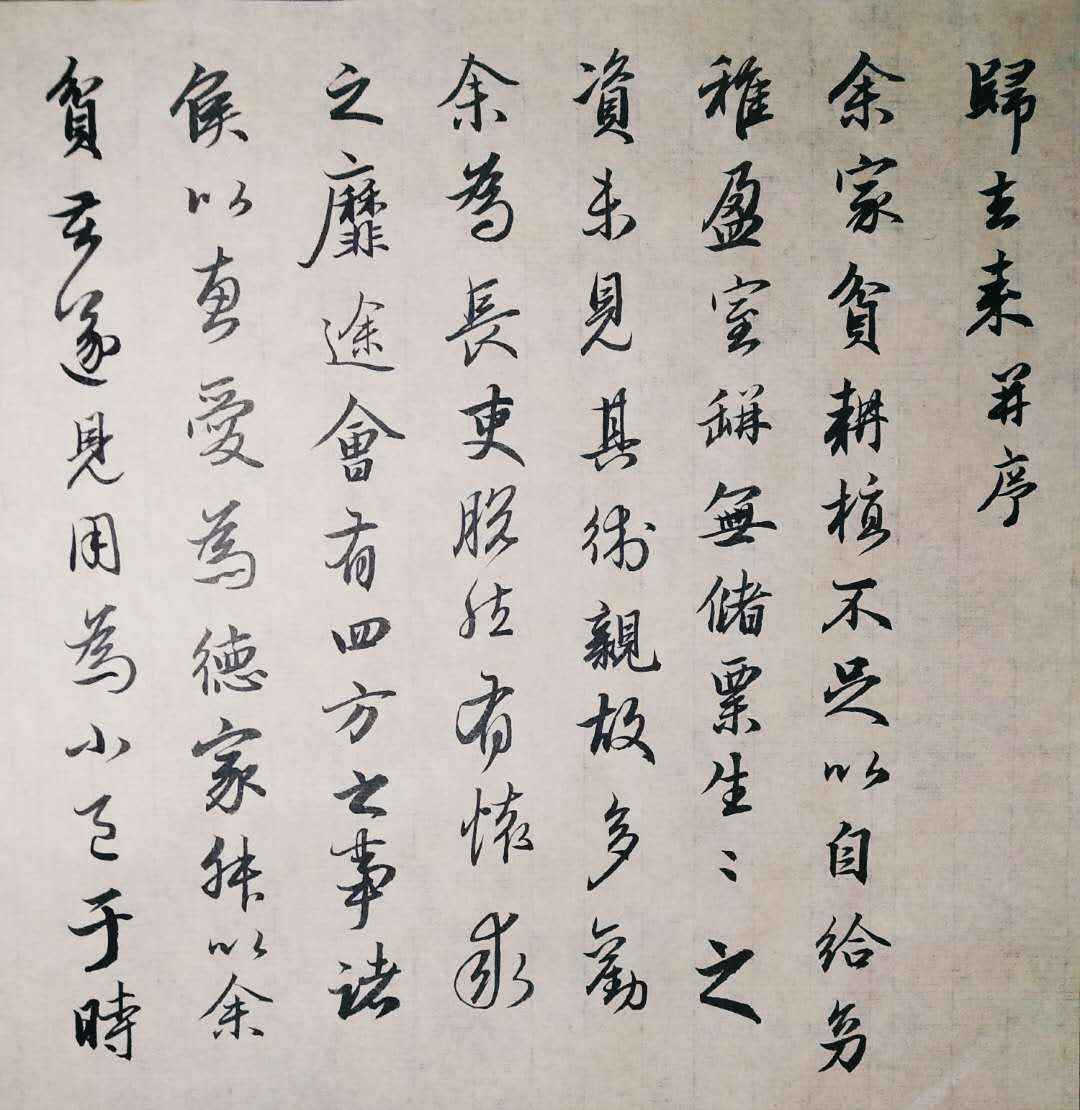 歸去来并序
余家貧耕植不足以自給幼
稚盈室缾無儲粟生〻之
資未見其術親故多勸
余為長吏脫然有懷求
之靡途會有四方之事諸
侯以惠愛為德家叔以余
貧苦遂見用為小邑于時